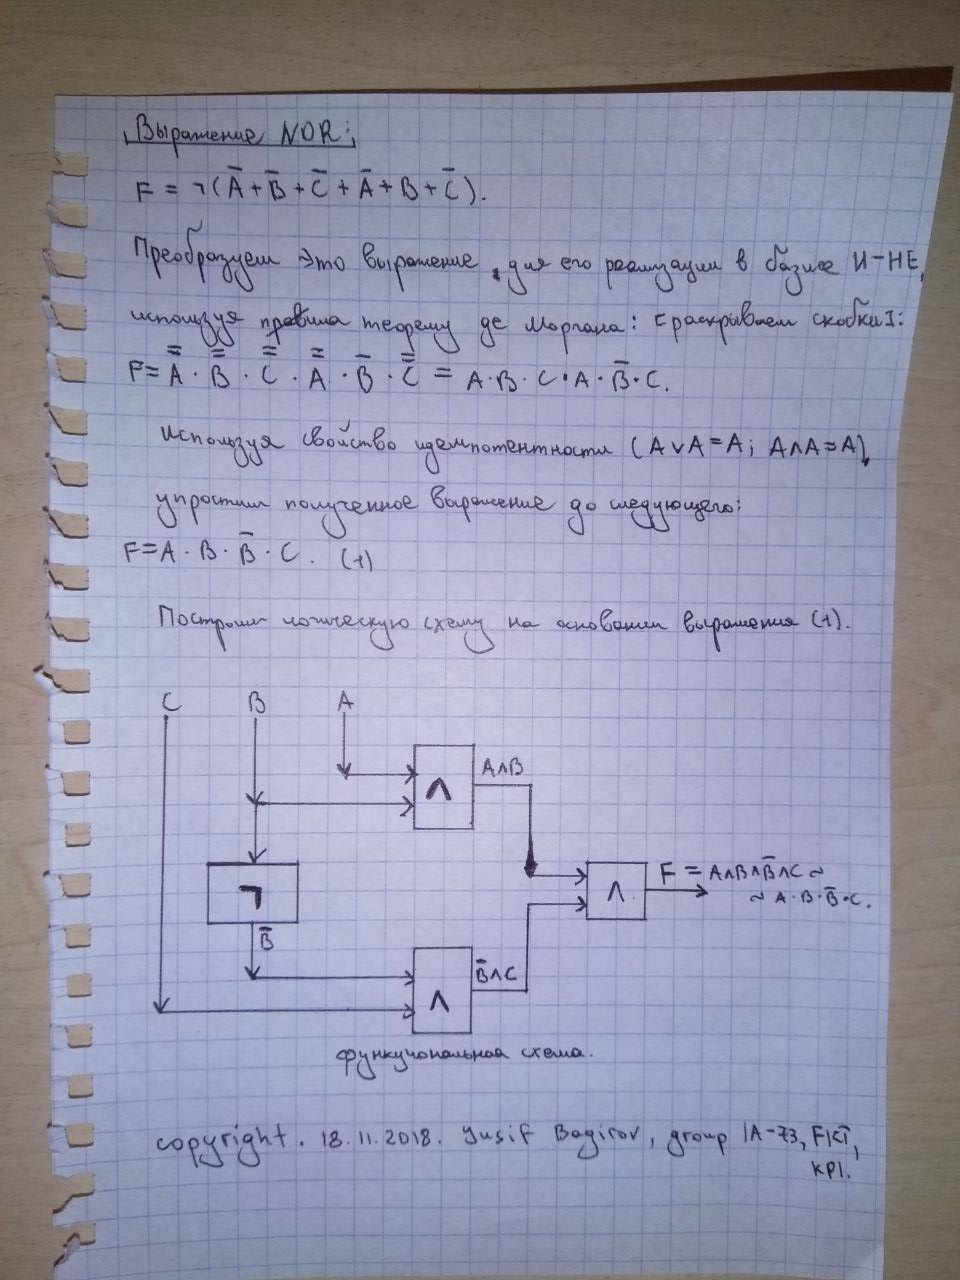 Выражение NOR:
F = ¬(A̅ + B̅ + C̅ + A̅ + B + C̅).
Преобразуем это выражение, для его реализации в базисе И-НЕ,
используя правила теорему де Моргана: [раскрываем скобки]:
F = A̿ · B̿ · C̿ · A̿ · B̅ · C̿ = A·B·C·A·B̅·C.
Используя свойство идемпотентности (A∨A=A; A∧A=A),
упростим полученное выражение до следующего:
F=A·B·B̅·C. (1)
Построим логическую схему на основании выражения (1).
C B A
A∧B
∧
¬
B̅
F = A∧B∧B̅∧C ~
~ A·B·B̅·C.
∧
B̅∧C
∧
функциональная схема.
copyright. 18.11.2018. Yusif Bagirov, group IA-73, FICT,
KPI.